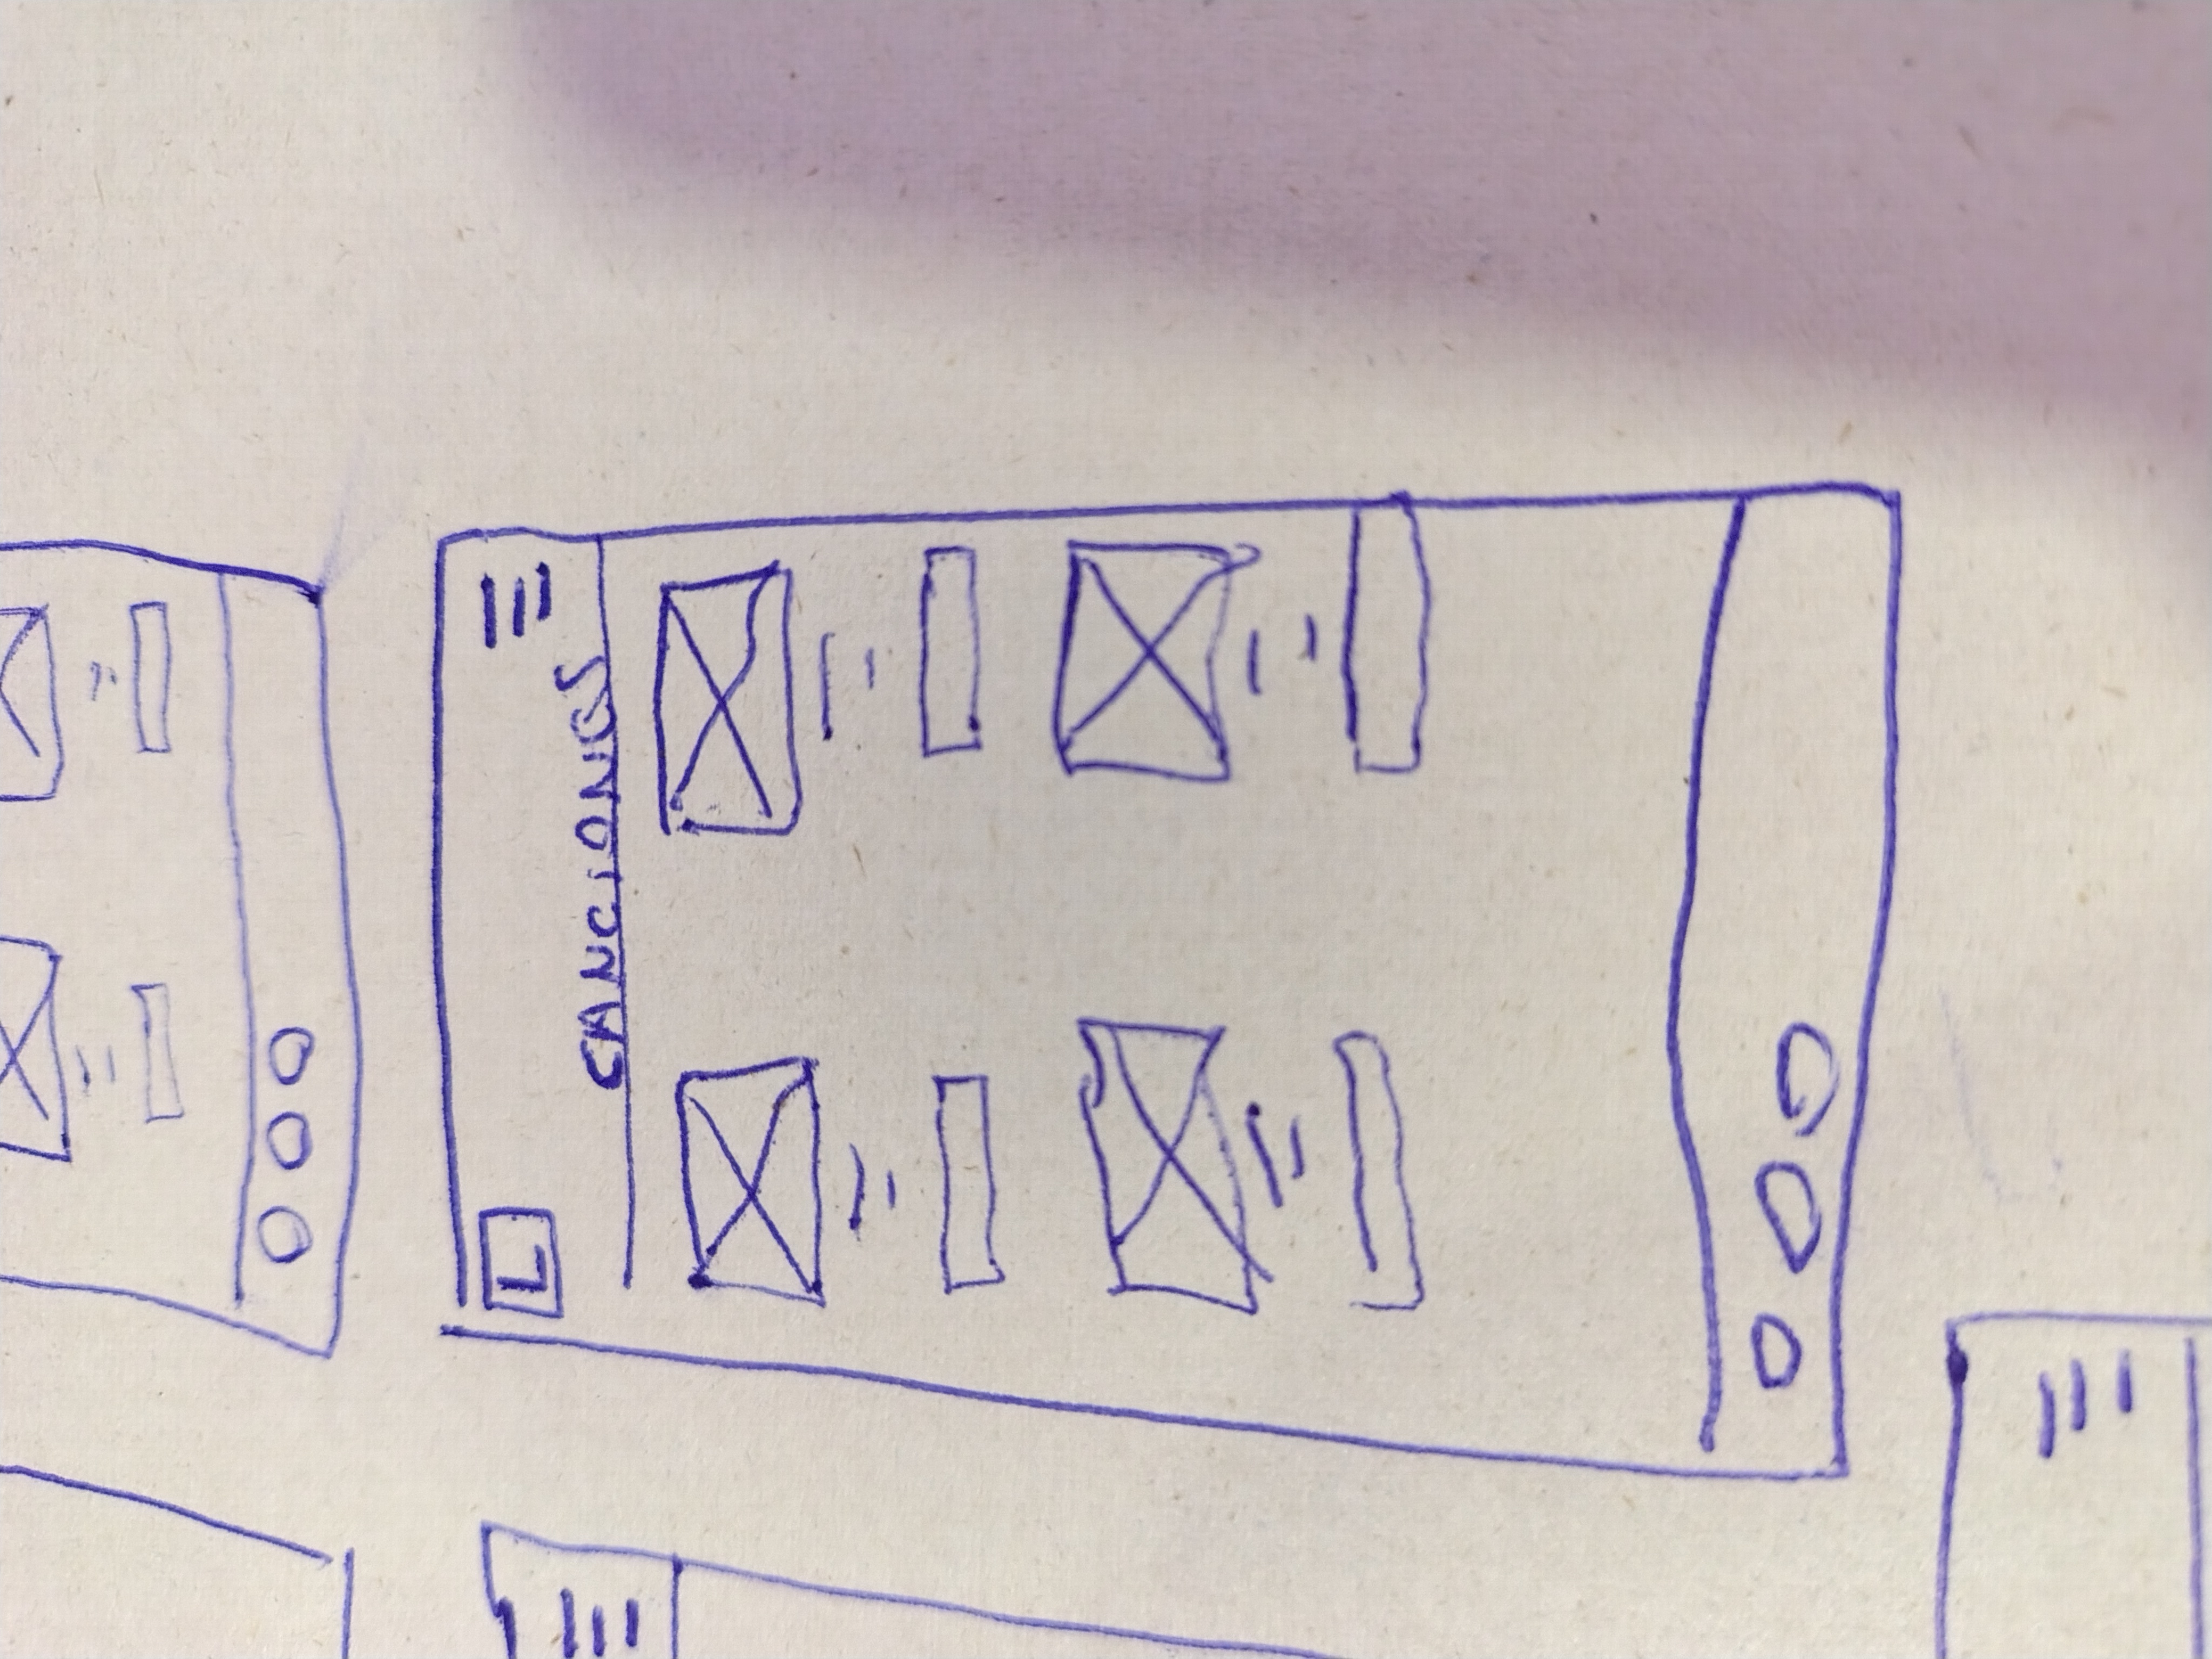 L
CANCIONES